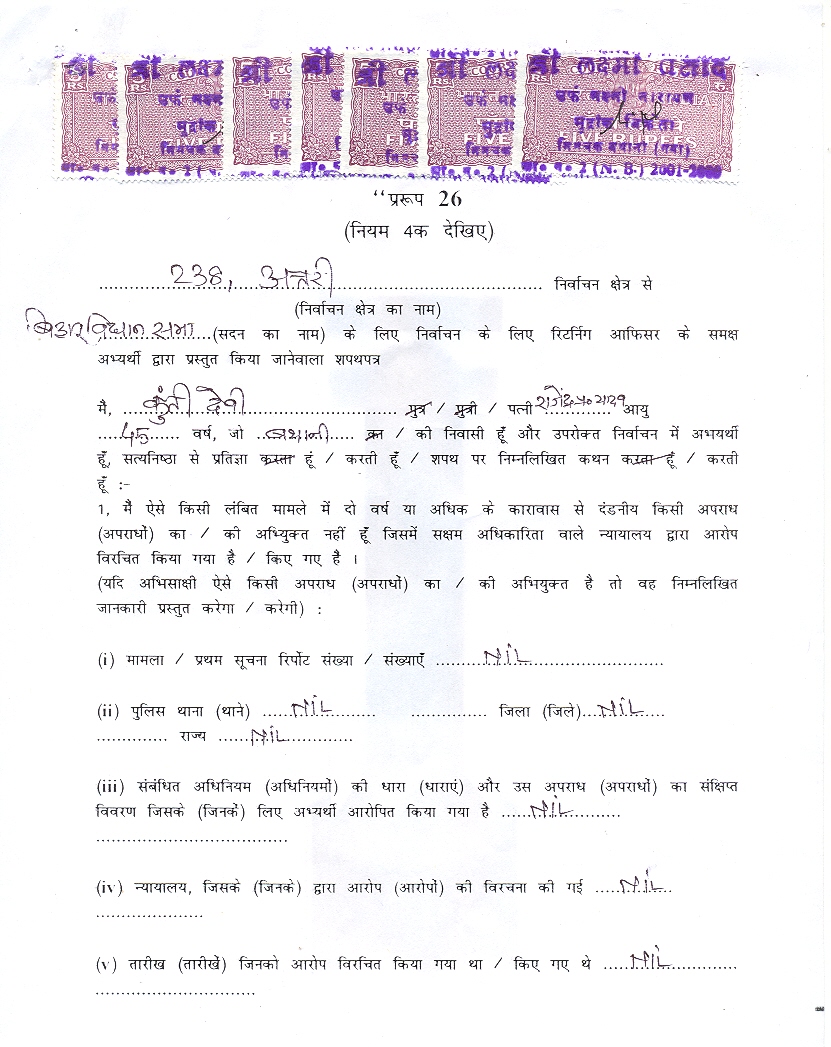 श्री लक्ष्मी प्रसाद
उर्फ लक्ष्मी नारायण
FIVE RUPEES
ला० न० 2 (N. B.) 2001-
“प्ररूप 26
(नियम 4क देखिए)
238, अतरी निर्वाचन क्षेत्र से
(निर्वाचन क्षेत्र का नाम)
बिहार विधान सभा (सदन का नाम) के लिए निर्वाचन के लिए रिटर्निग आफिसर के समक्ष
अभ्यर्थी द्वारा प्रस्तुत किया जानेवाला शपथपत्र
मै, कुंती देवी पुत्र / पुत्री / पत्नी राजेंद्र प्र० यादव आयु
45 वर्ष, जो का / की निवासी हूँ और उपरोक्त निर्वाचन में अभयर्थी
हूँ, सत्यनिष्ठा से प्रतिज्ञा करता हूं / करती हूँ / शपथ पर निम्नलिखित कथन करता हूँ / करती
हूँ :-
1, मै ऐसे किसी लंबित मामले में दो वर्ष या अधिक के कारावास से दंडनीय किसी अपराध
(अपराधों) का / की अभ्युक्त नहीं हूँ जिसमें सक्षम अधिकारिता वाले न्यायालय द्वारा आरोप
विरचित किया गया है / किए गए है ।
(यदि अभिसाक्षी ऐसे किसी अपराध (अपराधों) का / की अभियुक्त है तो वह निम्नलिखित
जानकारी प्रस्तुत करेगा / करेगी) :
(i) मामला / प्रथम सूचना रिर्पोट संख्या / संख्याएँ NiL
(ii) पुलिस थाना (थाने) NiL जिला (जिले) NiL
राज्य NiL
(iii) संबंधित अधिनियम (अधिनियमों) की धारा (धाराएं) और उस अपराध (अपराधों) का संक्षिप्त
विवरण जिसके (जिनके) लिए अभ्यर्थी आरोपित किया गया है NiL
(iv) न्यायालय, जिसके (जिनके) द्वारा आरोप (आरोपों) की विरचना की गई NiL
(v) तारीख (तारीखें) जिनको आरोप विरचित किया गया था / किए गए थे NiL